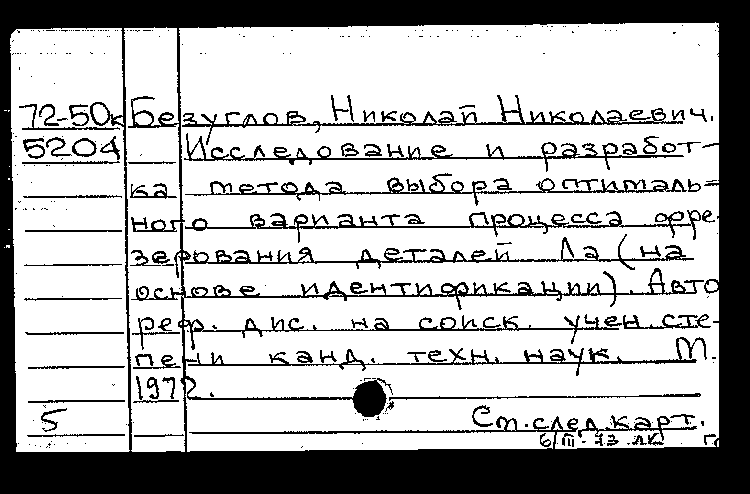 72-50к Безуглов, Николай Николаевич.
5204 Исследование и разработ-
ка метода выбора оптималь-
ного варианта процесса фре-
зерования деталей Ла (на
основе идентификации). Авто
реф. дис. на соиск. учен. сте-
пени канд. техн. наук. М.
1972.
5 См. след. карт.
6/III-73 ЛК